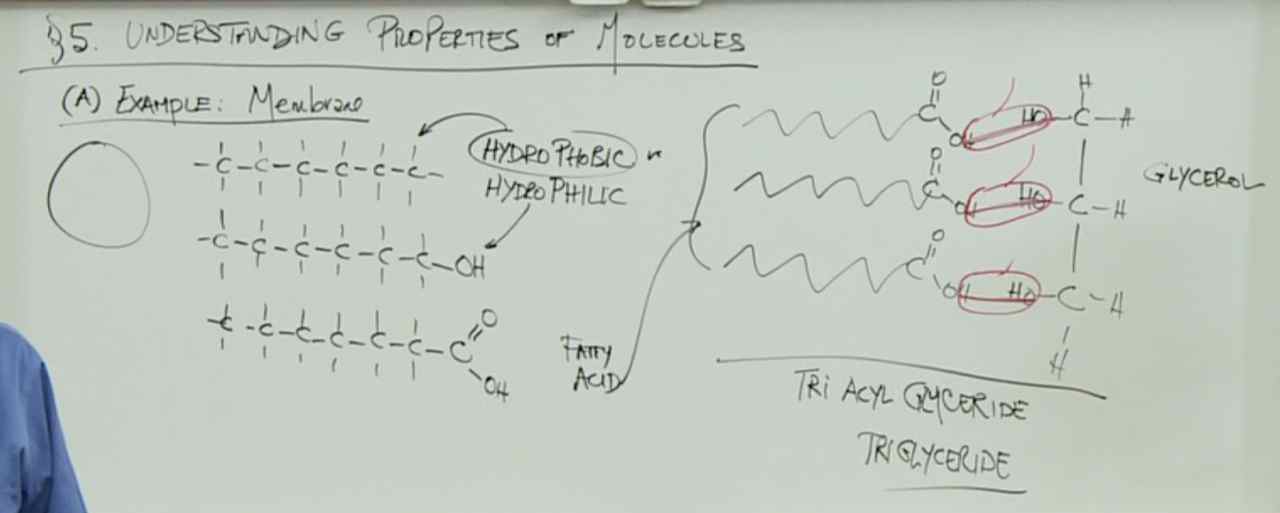 §5. UNDERSTANDING PROPERTIES OF MOLECULES
(A) EXAMPLE: Membrane
HYDROPHOBIC
HYDROPHILIC
-C-C-C-C-C-C-
-C-C-C-C-C-C-OH
-C-C-C-C-C-C-C
O
OH
FATTY
ACID
O
C
OH HO-C-H
H
O
C
OH HO-C-H
O
C
OH HO-C-H
H
GLYCEROL
TRI ACYL GLYCERIDE
TRIGLYCERIDE